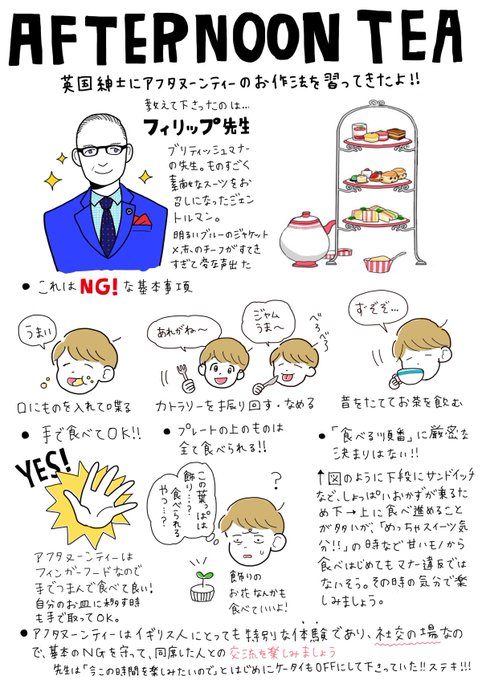 AFTERNOON TEA
英国紳士にアフタヌーンティーのお作法を習ってきたよ!!
教えて下さったのは…
フィリップ先生
ブリティッシュマナー
の先生。ものすごく
素敵なスーツをお
召しになったジェン
トルマン。
明るいブルーのジャケット
×赤のチーフがすてき
すぎて変な声出た
● これはNG!な基本事項
うまい
あれがね〜
ジャム
うま〜
べろべろ
ずぞぞ…
口にものを入れて喋る
カトラリーを振り回す・なめる
音をたててお茶を飲む
● 手で食べてOK!!
YES!
アフタヌーンティーは
フィンガーフードなので
手でつまんで食べて良い!
自分のお皿に移す時
も手で取ってOK。
● プレートの上のものは
全て食べられる!!
この葉っぱは
飾り…?
食べられる
やつ…?
?
飾りの
お花なんかも
食べていいよ!
● 「食べる順番」に厳密な
決まりはない!!
↑図のように下段にサンドイッチ
など、しょっぱいおかずが来るた
め下→上に食べ進めること
が多いが、「めっちゃスイーツ気
分!!」の時など甘いモノから
食べはじめてもマナー違反では
ないそう。その時の気分で楽
しみましょう。
● アフタヌーンティーはイギリス人にとっても特別な体験であり、社交の場なの
で、基本のNGを守って、同席した人との交流を楽しみましょう
先生は「今この時間を楽しみたいので」とはじめにケータイもOFFにして下さっていた!!ステキ!!!